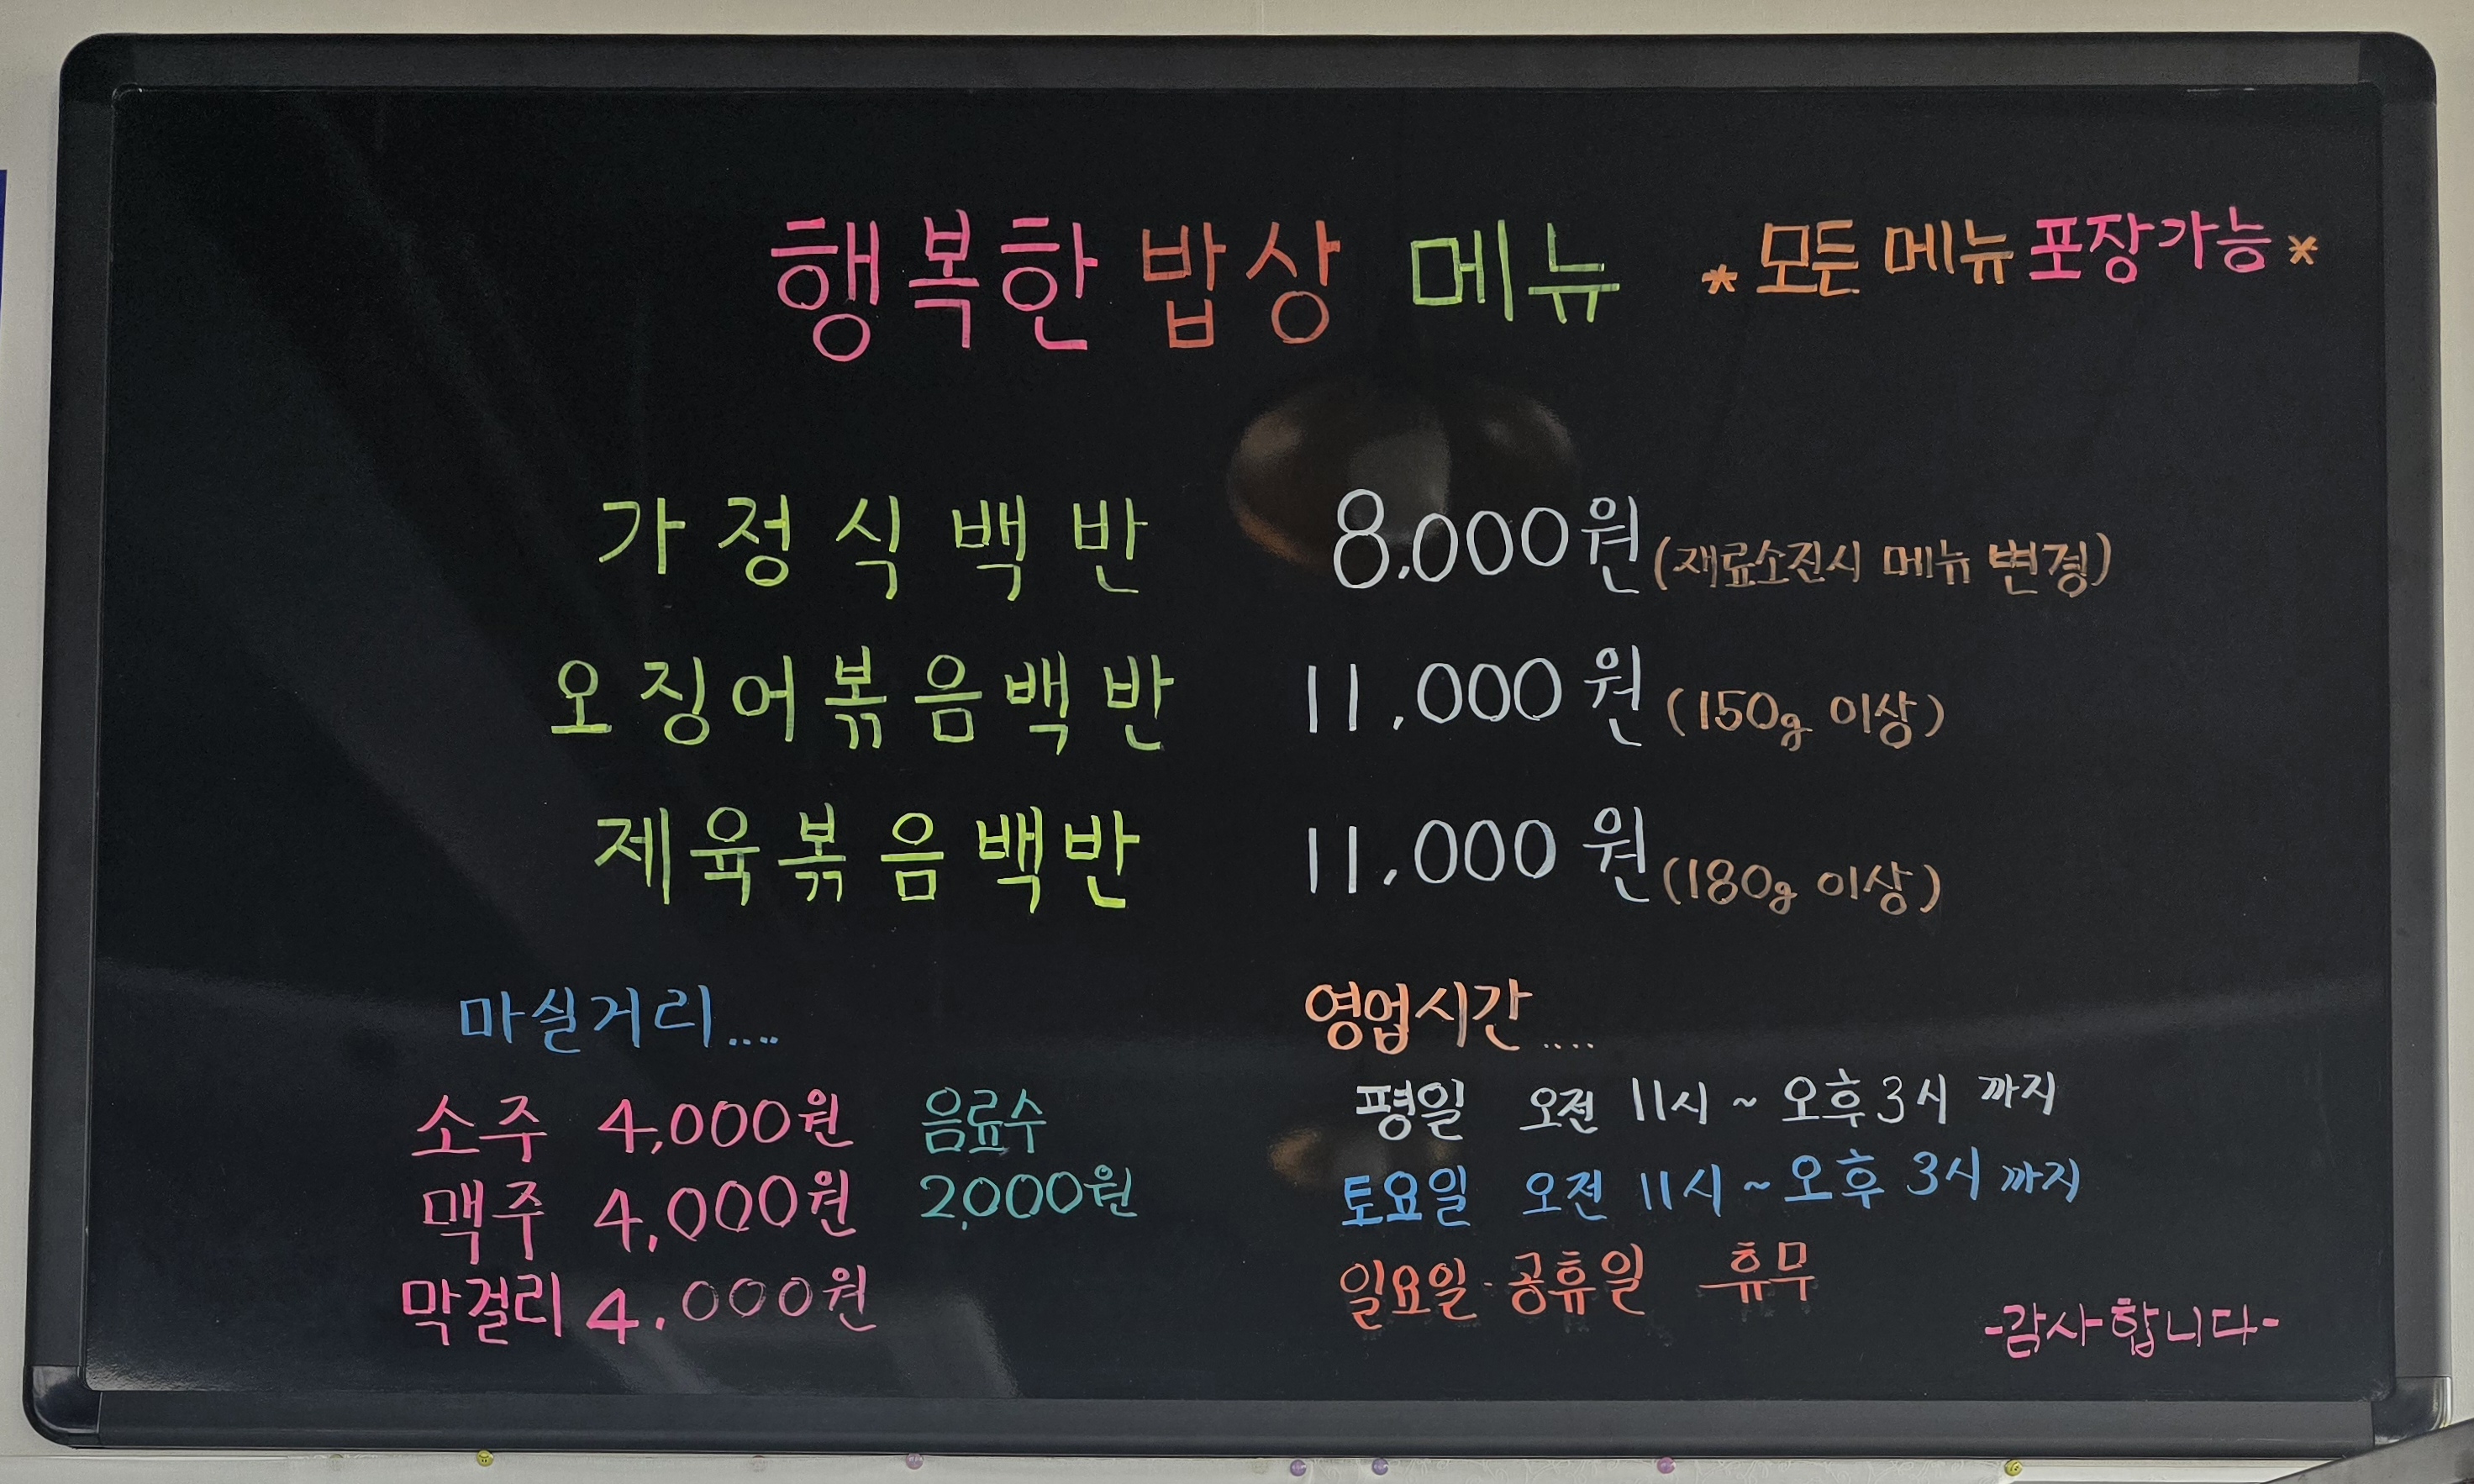 행복한 밥상 메뉴 *모든 메뉴 포장가능*
가정식백반 8,000원 (재료소진시 메뉴 변경)
오징어볶음백반 11,000원 (150g 이상)
제육볶음백반 11,000원 (180g 이상)
마실거리....
소주 4,000원 음료수
맥주 4,000원 2,000원
막걸리 4,000원
영업시간....
평일 오전 11시 ~ 오후 3시 까지
토요일 오전 11시 ~ 오후 3시 까지
일요일·공휴일 휴무
-감사합니다-